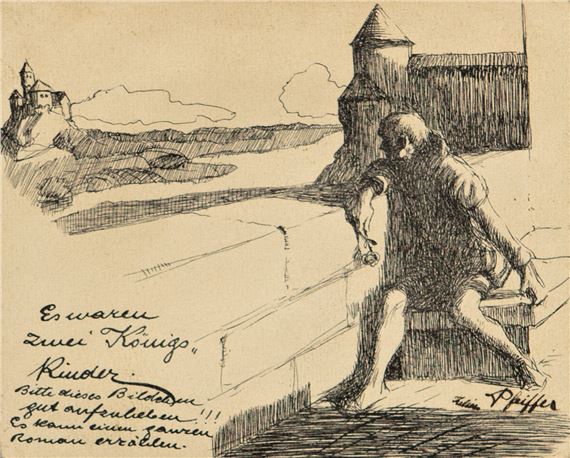 Es waren
zwei Königs„
Kinder.
Bitte dieses Bildchen
gut aufenheben!!!
Es kann einen ganzen
Roman erzählen.
Pfeiffer